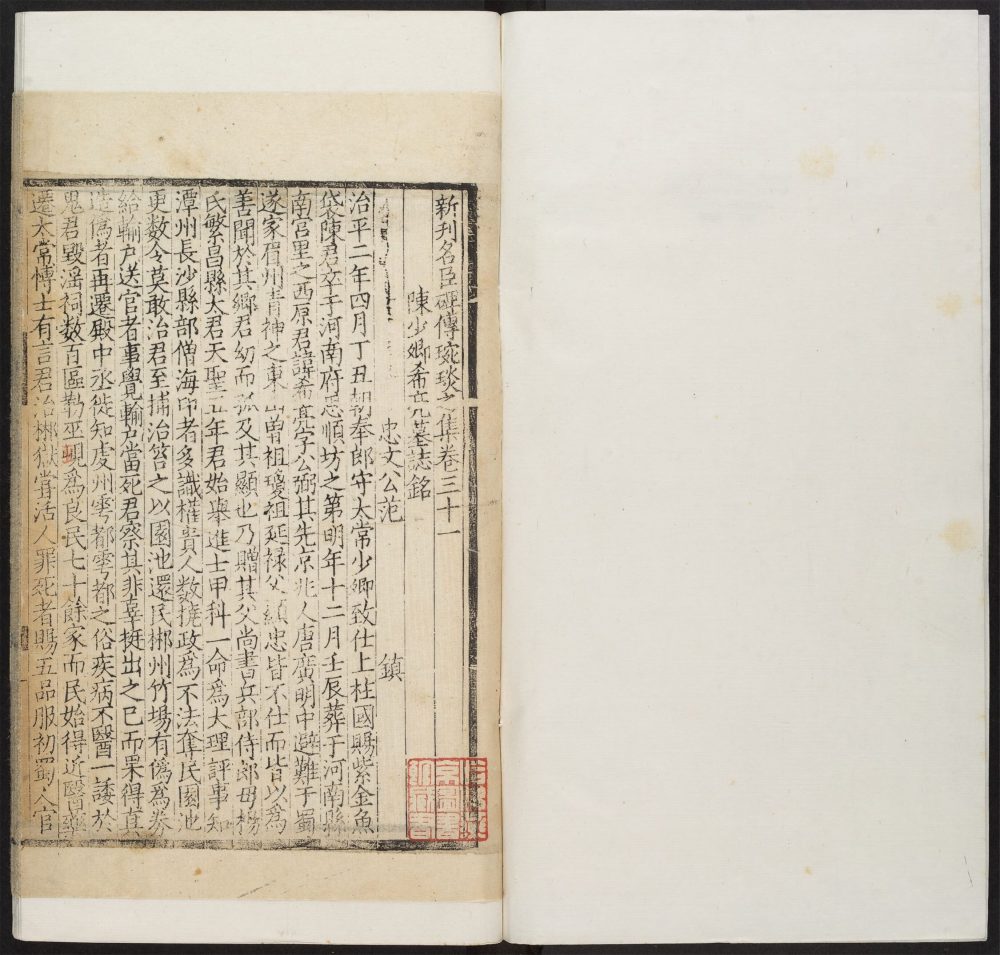 新刊名臣碑傳琬琰之集卷三十一
陳少卿希亮墓誌銘
忠文公范 鎮
治平二年四月丁丑朝奉郎守太常少卿致仕上柱國賜紫金魚
袋陳君卒于河南府忠順坊之第明年十二月壬辰葬于河南縣
南宮里之西原君諱希亮字公弼其先京兆人唐廣明中避難于蜀
遂家眉州青神之東山曽祖瓊祖延禄父顯忠皆不仕而皆以為
善聞於其鄉君幼而孤及其顯也乃贈其父尚書兵部侍郎母楊
氏繁昌縣太君天聖五年君始舉進士甲科一命為大理評事知
潭州長沙縣部僧海印者多識權貴人數撓政為不法奪民園池
更數令莫敢治君至捕治笞之以園池還民郴州竹場有偽為券
給輸户送官者事覺輸户當死君察其非辜挺出之已而果得真
造偽者再遷殿中丞徙知虔州雩都雩都之俗疾病不醫一諉於
鬼君毀淫祠數百區勒巫覡為良民七十餘家而民始得近醫藥
遷太常博士有言君治郴獄嘗活人罪死者賜五品服初蜀人官